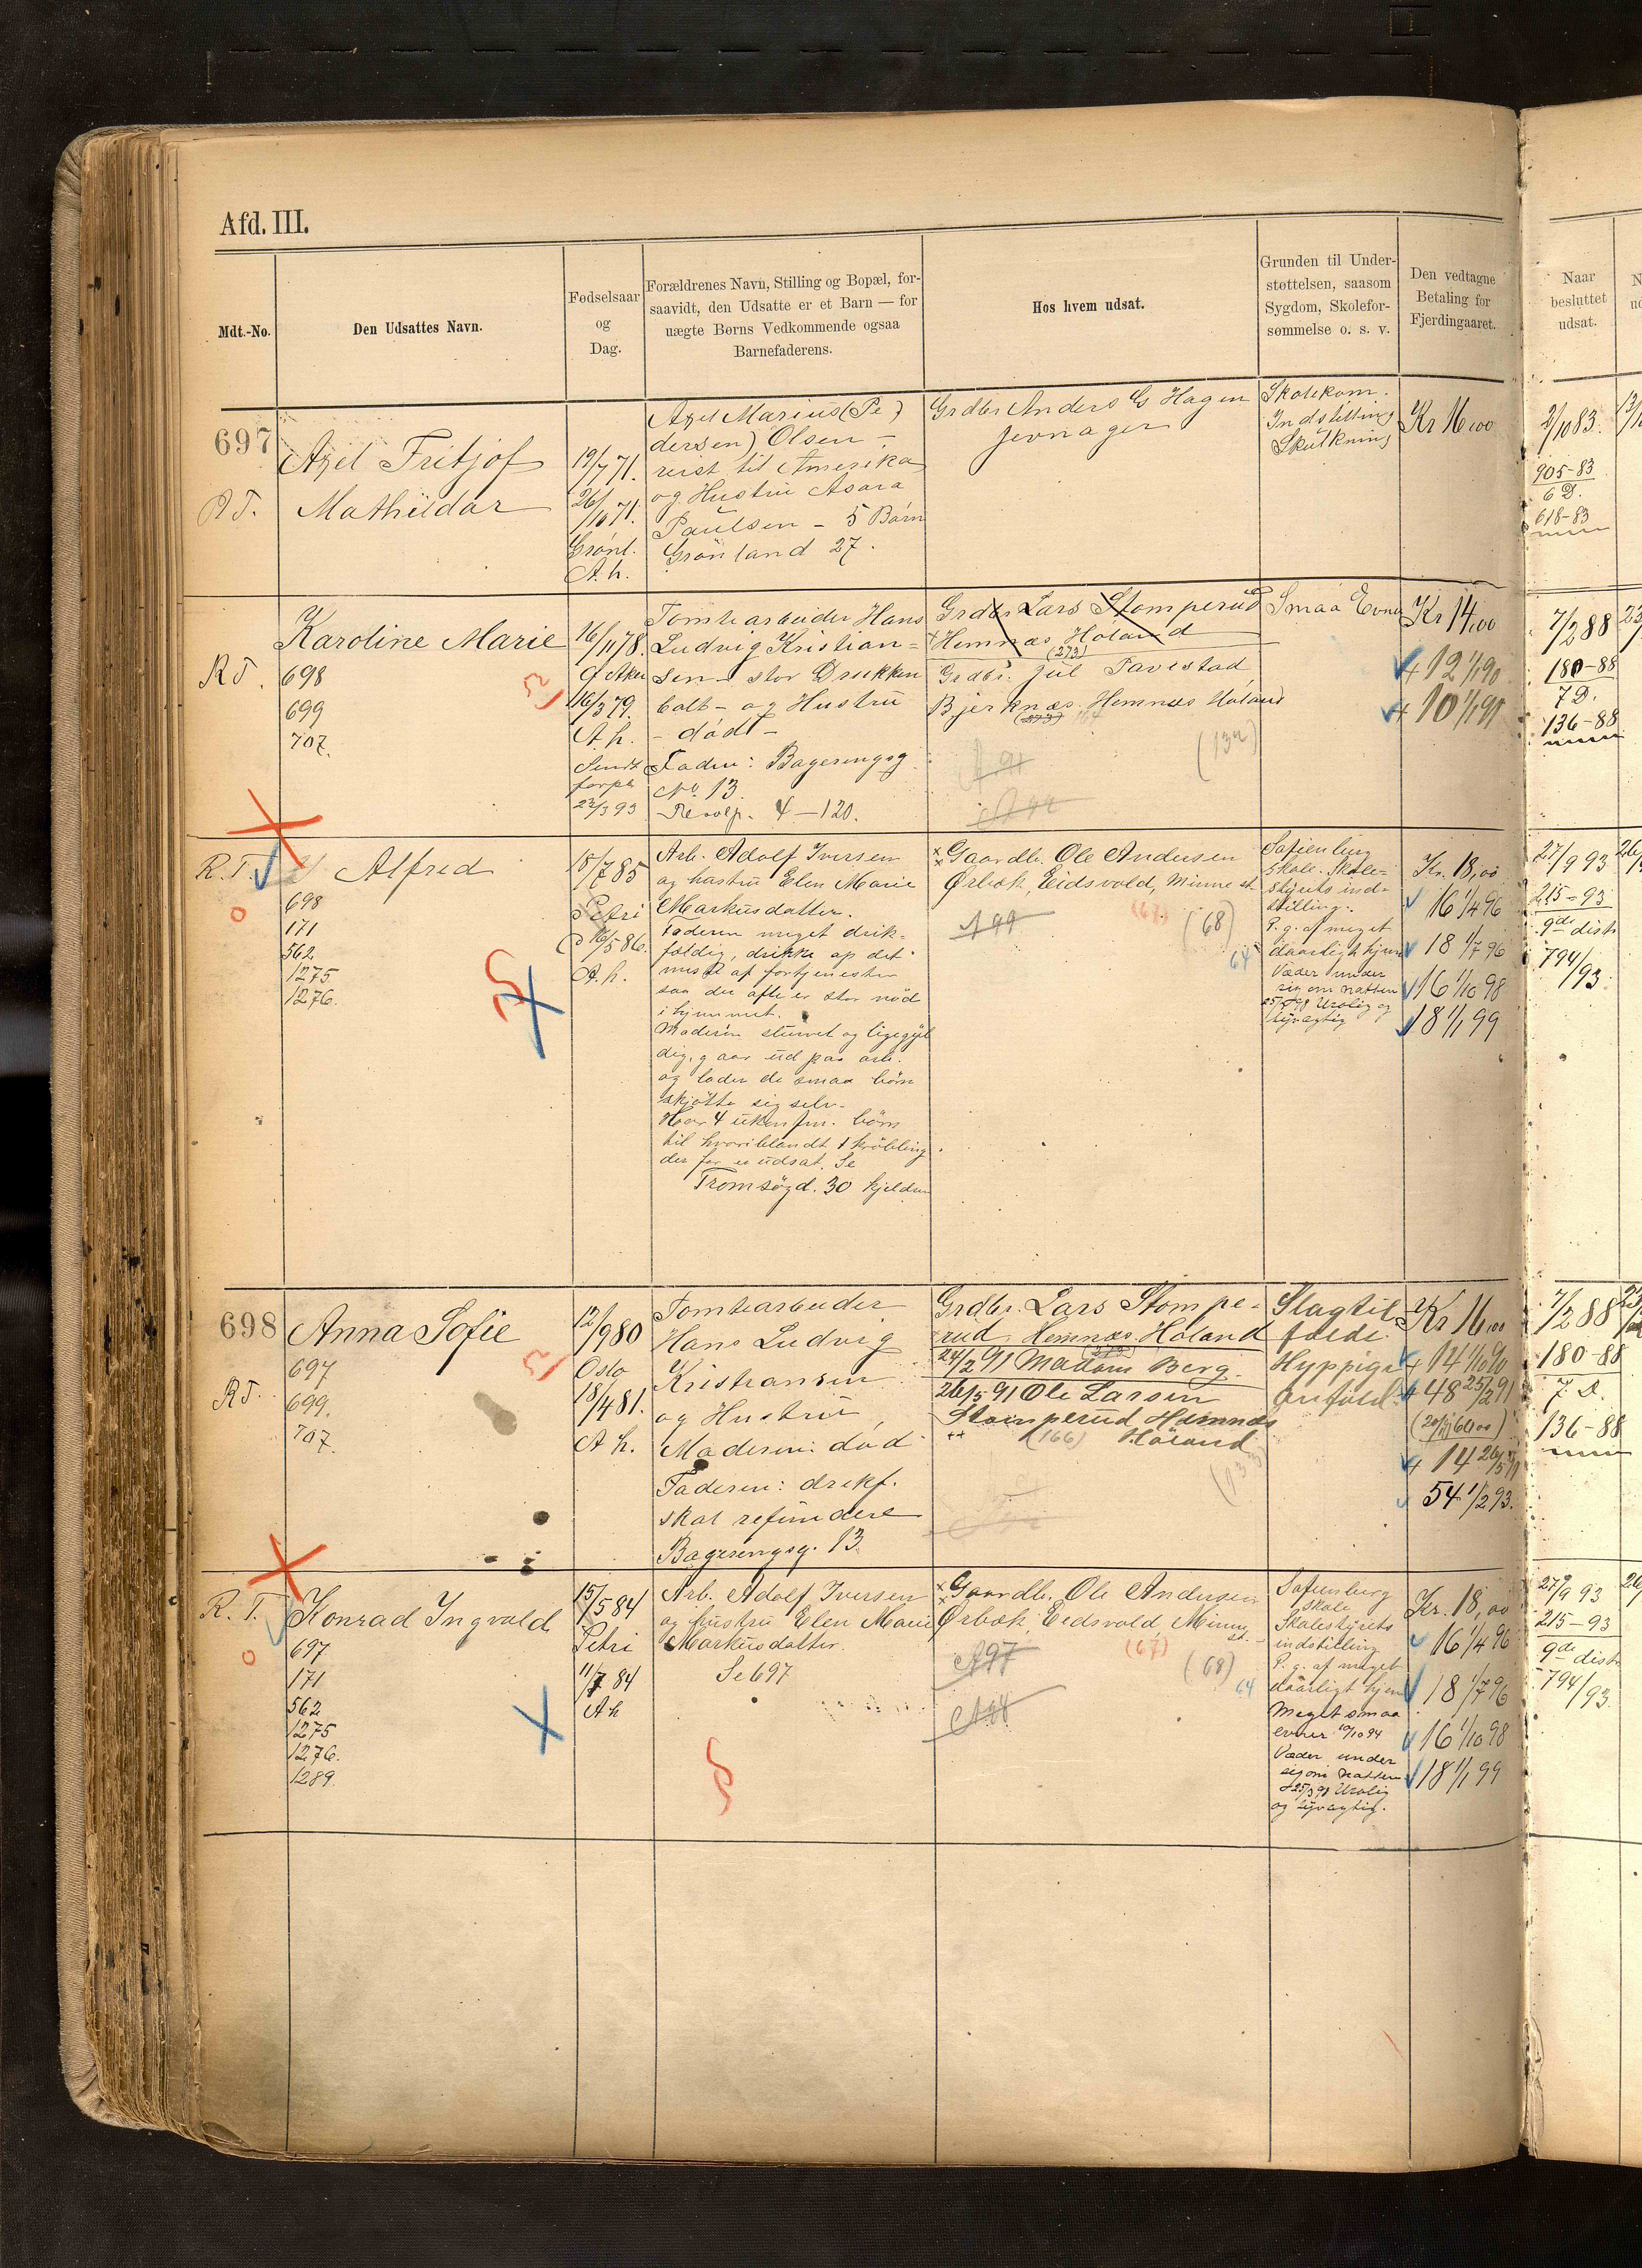 Afd. III.
Mdt.-No.
Den Udsattes Navn.
Fødselsaar
og
Dag.
Forældrenes Navn, Stilling og Bopæl, for-
saavidt, den Udsatte er et Barn — for
uægte Børns Vedkommende ogsaa
Barnefaderens.
Hos hvem udsat.
Grunden til Under-
støttelsen, saasom
Sygdom, Skolefor-
sømmelse o. s. v.
Den vedtagne
Betaling for
Fjerdingaaret.
Naar
besluttet
udsat.
697
RT.
Axel Fritjof
Mathildar
19/7 71.
26/10 71.
Grønl.
A. h.
Axel Marius (Pe
dersen) Olsen -
reist til Amerika
og Hustru
Paulsen - 5 Børn
Grønland 27.
Grdbr Anders G Hagen
Jevnager
Skolekom.
Indstilling
Skulkning
Kr 16,00
2/10 83.
905-83
6 D.
618-83
RT.
Karoline Marie
698
699
707.
16/11 78.
G Aker
16/3 79.
A. h.
Sendt
forpl
22/3 93
Tomtearbeider Hans
Ludvig Kristian=
sen - stor Drukken
bolt - og Hustru
- død -
Faden: Bagerengsg
No. 13.
4-120.
Grdbr Lars Stomperud
Hemnæs Høland
(273)
Grdbr. Jul Tavestad
Bjerknæs. Hemnæs Høland
(132)
A 91
Smaa Evner
Kr 14,00
+ 12 1/1 90
+ 10 1/1 91
7/2 88
180-88
7 D.
136-88
R. T.
Alfred
698
171
562
1275
1276.
18/7 85
Petri
16/5 86.
A. h.
Arb. Adolf Iversen
og hustru Elen Marie
Markusdatter.
Faderen meget drik-
fældig, drikke op det
meste af fortjenesten
saa der ofte er stor nød
i hjemmet.
Moderen sturvet og ligegyl
dig, gaar ud paa arb.
og lader de smaa børn
skjøtte sig selv.
Har 4 ukonfirm. børn
til hvoriblandt 1 krøbling
der før er udsat. Se
Tromsøgd. 30 kjelderen
Gaardbr. Ole Andersen
Ørbæk, Eidsvold, Minne st
A 99
(67)
(68)
64
Sofienberg
skole. Skole-
styrets ind-
stilling.
P. g. af meget
daarligt hjem
Væder under
sig om natten
25/3 98 Urolig og
tyvagtig
Kr. 18,00
16 1/4 96
18 1/7 96
16 1/10 98
18 1/1 99
27/9 93
215-93
9de distr
794/93
698
RT.
Anna Sofie
697
699.
707.
12/9 80
Oslo
18/4 81.
A h.
Tomtearbeider
Hans Ludvig
Kristiansen
og Hustru,
Moderen: død
Faderen: drikf.
skal refundere
Bagerengsg. 13.
Grdbr. Lars Stompe-
rud. Hemnæs. Høland
24/2 91 Madam Berg.
26/5 91 Ole Larsen
Stomperud Hemnæs
(166) Høland
(133)
Slagtil
fælde.
Hyppige
Anfald.
Kr 16,00
+ 14 1/10 90
+ 48 25/2 91
+ 14 26/5 91
54 1/2 93.
7/2 88
180-88
7 D.
136-88
R. T.
Konrad Ingvald
697
171
562
1275
1276.
1289.
15/5 84
Petri
11/7 84
A h
Arb. Adolf Iversen
og hustru Elen Marie
Markusdatter.
Se 697
Gaardbr. Ole Andersen
Ørbæk, Eidsvold, Minne
st.
A 97
(67)
(68)
64
A 98
Sofienberg
skole
Skolestyrets
indstilling
P. g. af meget
daarligt hjem
Meget smaa
evner 10/10 94
Væder under
sig om natten
25/3 98 Urolig
og tyvagtig.
Kr. 18,00
16 1/4 96
18 1/7 96
16 1/10 98
18 1/1 99
27/9 93
215-93
9de distr
794/93.